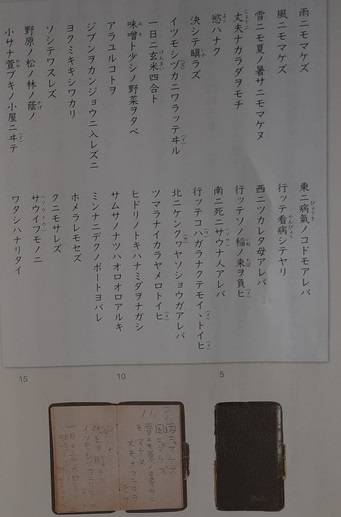 雨ニモマケズ
風ニモマケズ
雪ニモ夏ノ暑サニモマケヌ
丈夫ナカラダヲモチ
慾ハナク
決シテ瞋ラズ
イツモシヅカニワラッテヰル
一日ニ玄米四合ト
味噌ト少シノ野菜ヲタベ
アラユルコトヲ
ジブンヲカンジョウニ入レズニ
ヨクミキキシワカリ
ソシテワスレズ
野原ノ松ノ林ノ蔭ノ
小サナ萓ブキノ小屋ニヰテ
東ニ病氣ノコドモアレバ
行ッテ看病シテヤリ
西ニツカレタ母アレバ
行ッテソノ稲ノ束ヲ負ヒ
南ニ死ニサウナ人アレバ
行ッテコハガラナクテモイヽトイヒ
北ニケンクヮヤソショウガアレバ
ツマラナイカラヤメロトイヒ
ヒドリノトキハナミダヲナガシ
サムサノナツハオロオロアルキ
ミンナニデクノボートヨバレ
ホメラレモセズ
クニモサレズ
サウイフモノニ
ワタシハナリタイ
5
10
15